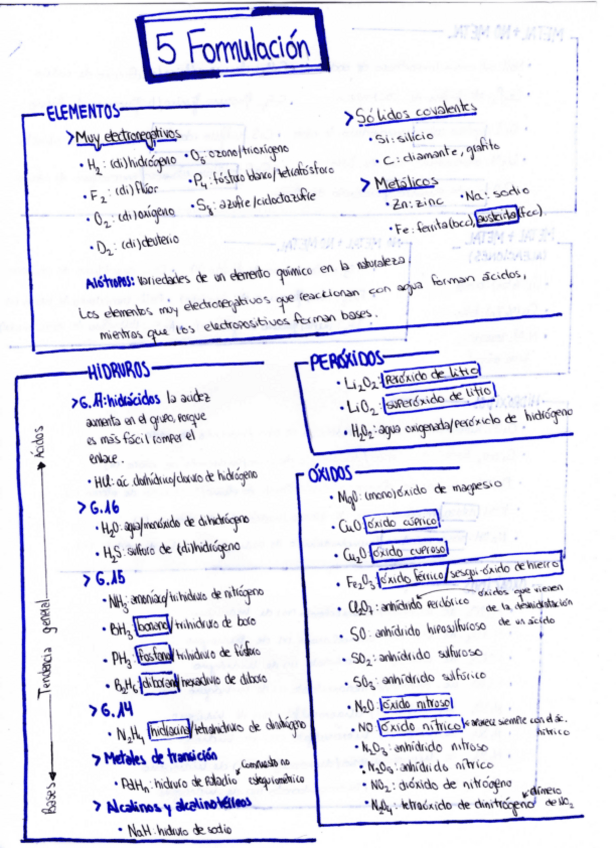 5 Formulación
ELEMENTOS
> Muy electronegativos
• H2: (di)hidrógeno
• F2: (di)flúor
• O2: (di)oxígeno
• D2: (di)deuterio
• O3: ozono/trioxígeno
• P4: fósforo blanco/tetrafósforo
• S8: azufre/ciclooctazufre
> Sólidos covalentes
• Si: silicio
• C: diamante, grafito
> Metálicos
• Zn: zinc • Na: sodio
• Fe: ferrita(bcc), austerita(fcc).
Alótropos: variedades de un elemento químico en la naturaleza.
Los elementos muy electronegativos que reaccionan con agua forman ácidos,
mientras que los electropositivos forman bases.
HIDRUROS
Ácidos
Tendencia general
Bases
> G.17: hidrácidos la acidez
aumenta en el grupo, porque
es más fácil romper el
enlace.
• HCl: ác. clorhídrico/cloruro de hidrógeno
> G.16
• H2O: agua/monóxido de dihidrógeno
• H2S: sulfuro de (di)hidrógeno
> G.15
• NH3: amoníaco/trihidruro de nitrógeno
• BH3 borano/trihidruro de boro
• PH3 fosfano/trihidruro de fósforo
• B2H6 diborano/hexahidruro de diboro
> G.14
• N2H4 hidracina/tetrahidruro de dinitrógeno
> Metales de transición
• PdHn: hidruro de Paladio compuesto no
estequiométrico
> Alcalinos y alcalinotérreos
• NaH: hidruro de sodio
PERÓXIDOS
• Li2O2: Peróxido de litio
• LiO2: superóxido de litio
• H2O2: agua oxigenada/peróxido de hidrógeno
ÓXIDOS
• MgO: (mono)óxido de magnesio
• CuO óxido cúprico
• Cu2O óxido cuproso
• Fe2O3 óxido férrico/sesqui-óxido de hierro
• Cl2O7: anhídrido perclórico
óxidos que vienen
de la deshidratación
de un ácido
• SO: anhídrido hiposulfuroso
• SO2: anhídrido sulfuroso
• SO3: anhídrido sulfúrico
• N2O óxido nitroso
• NO óxido nítrico aparece siempre con el ác.
nítrico
• N2O3: anhídrido nitroso
• N2O5: anhídrido nítrico
• NO2: dióxido de nitrógeno
• N2O4: tetraóxido de dinitrógeno dímero
de NO2